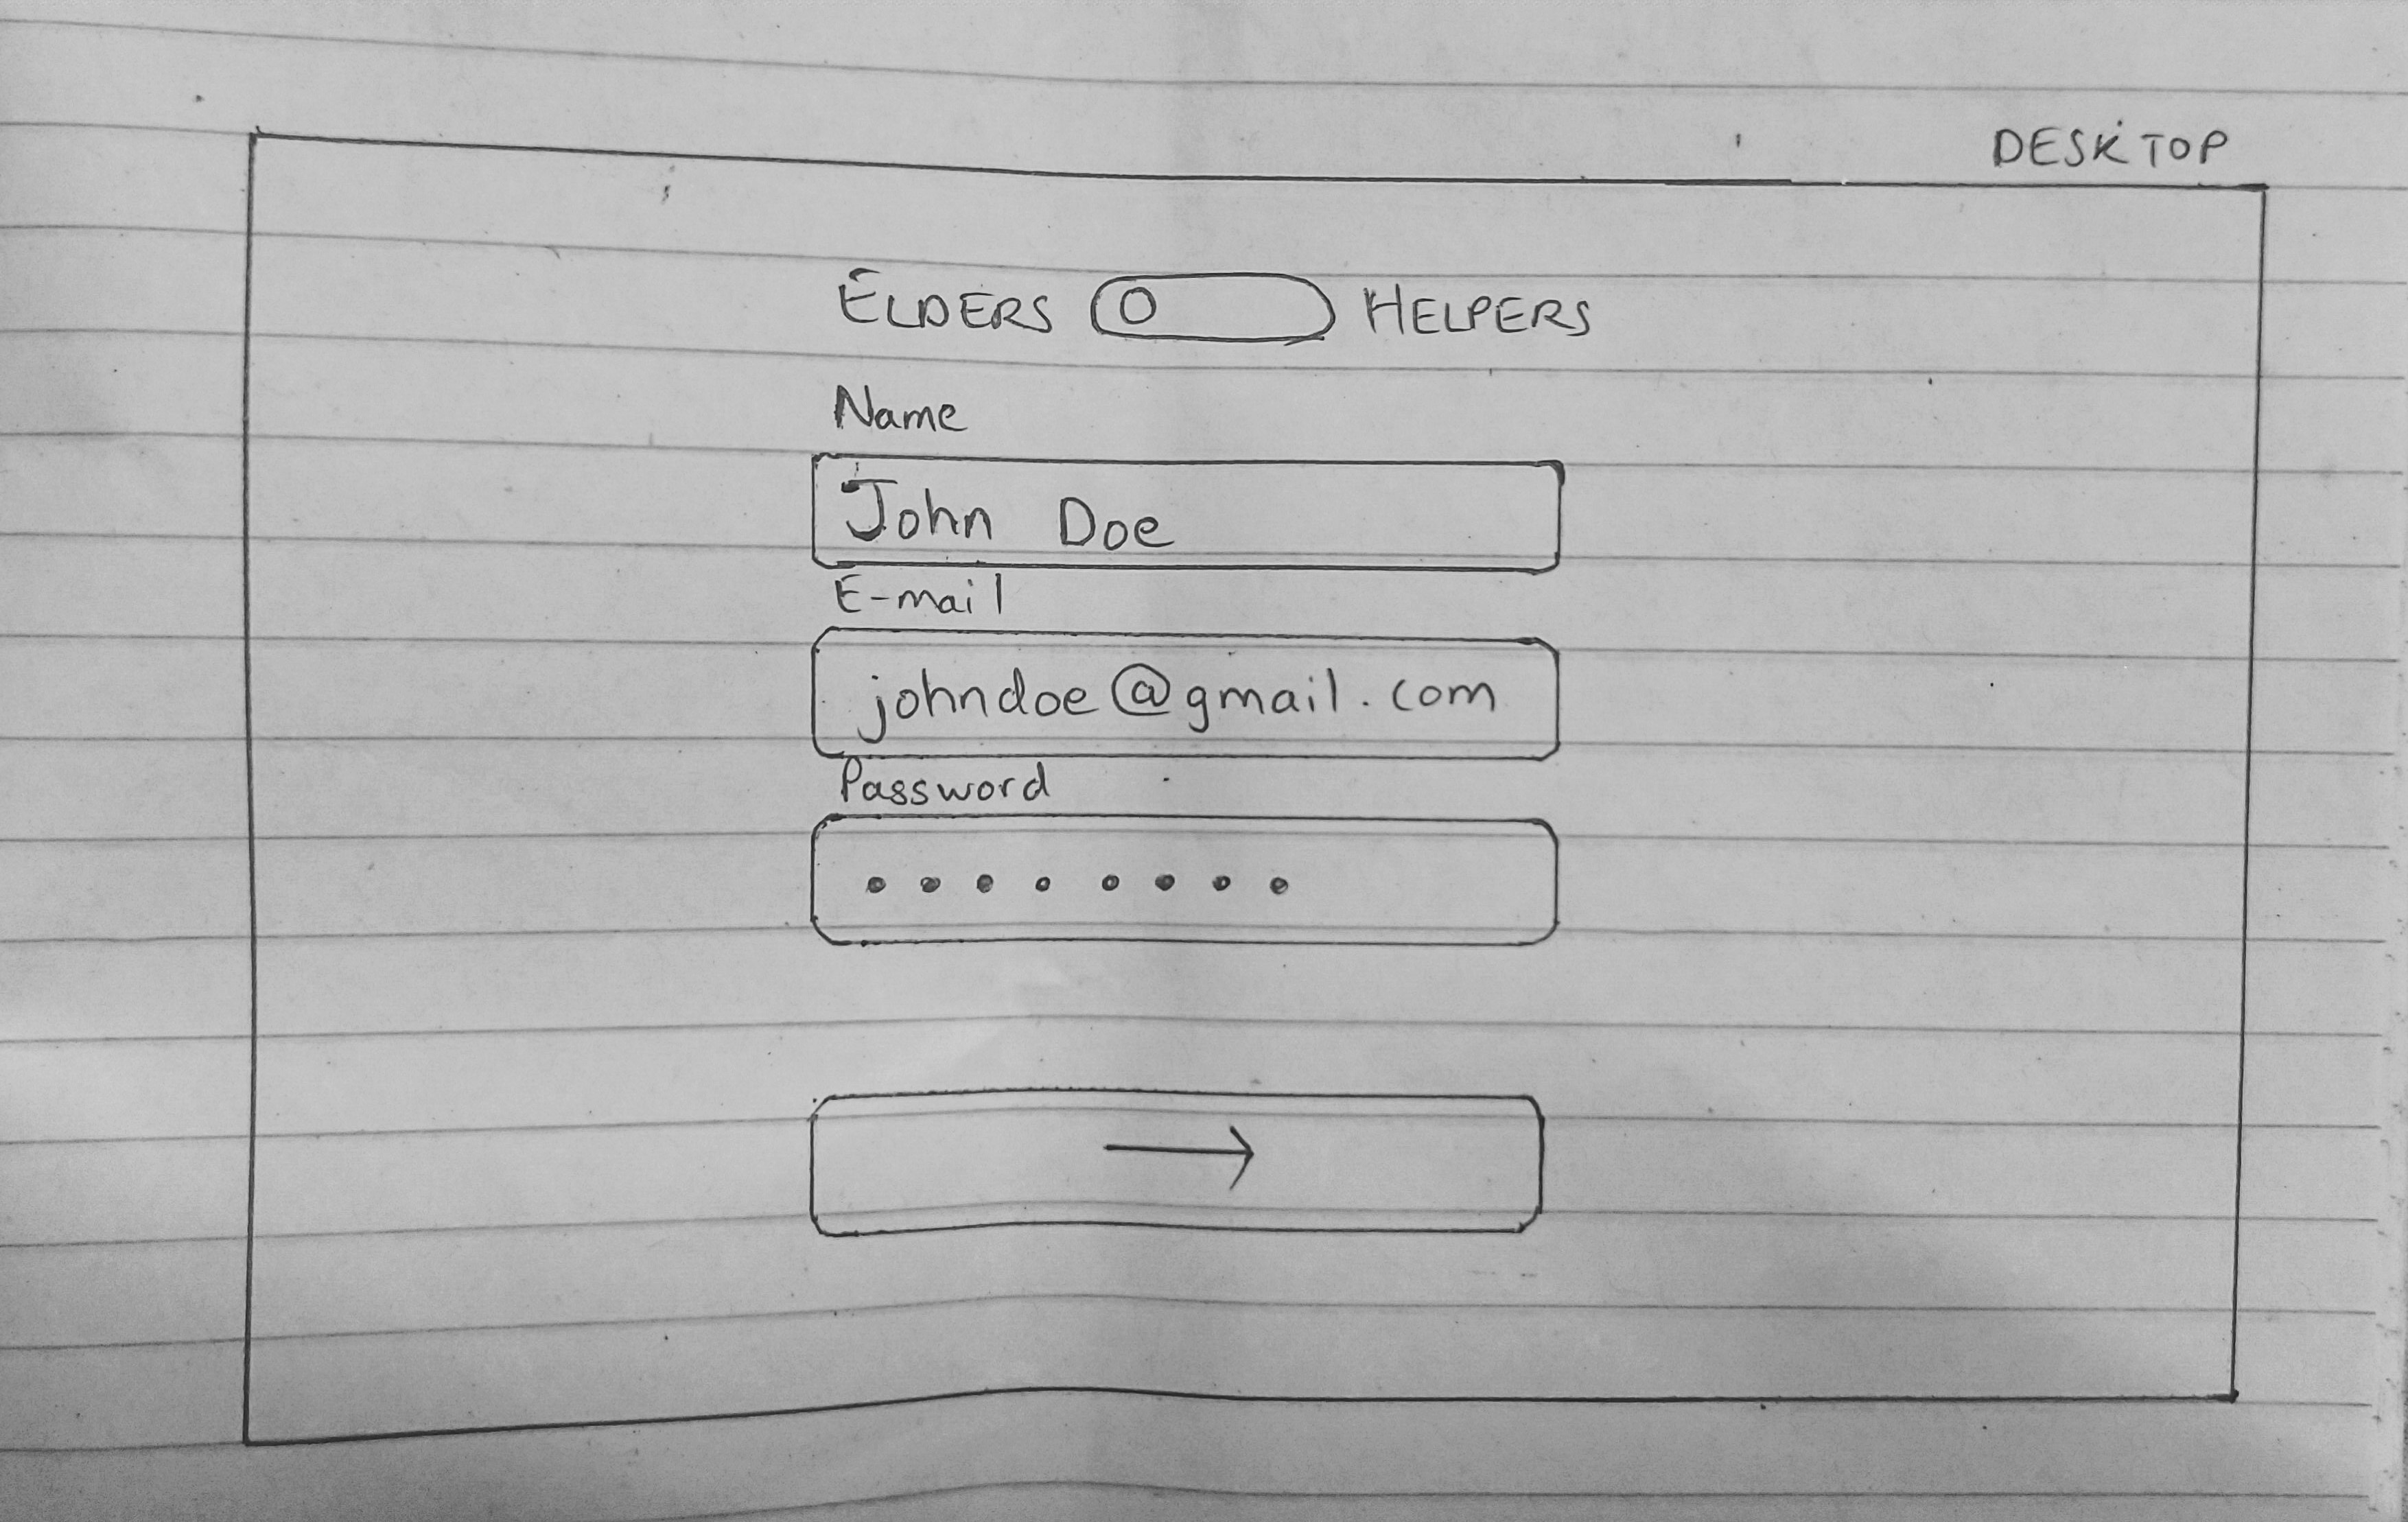 DESKTOP
ELDERS HELPERS
Name
John Doe
E-mail
johndoe@gmail.com
Password